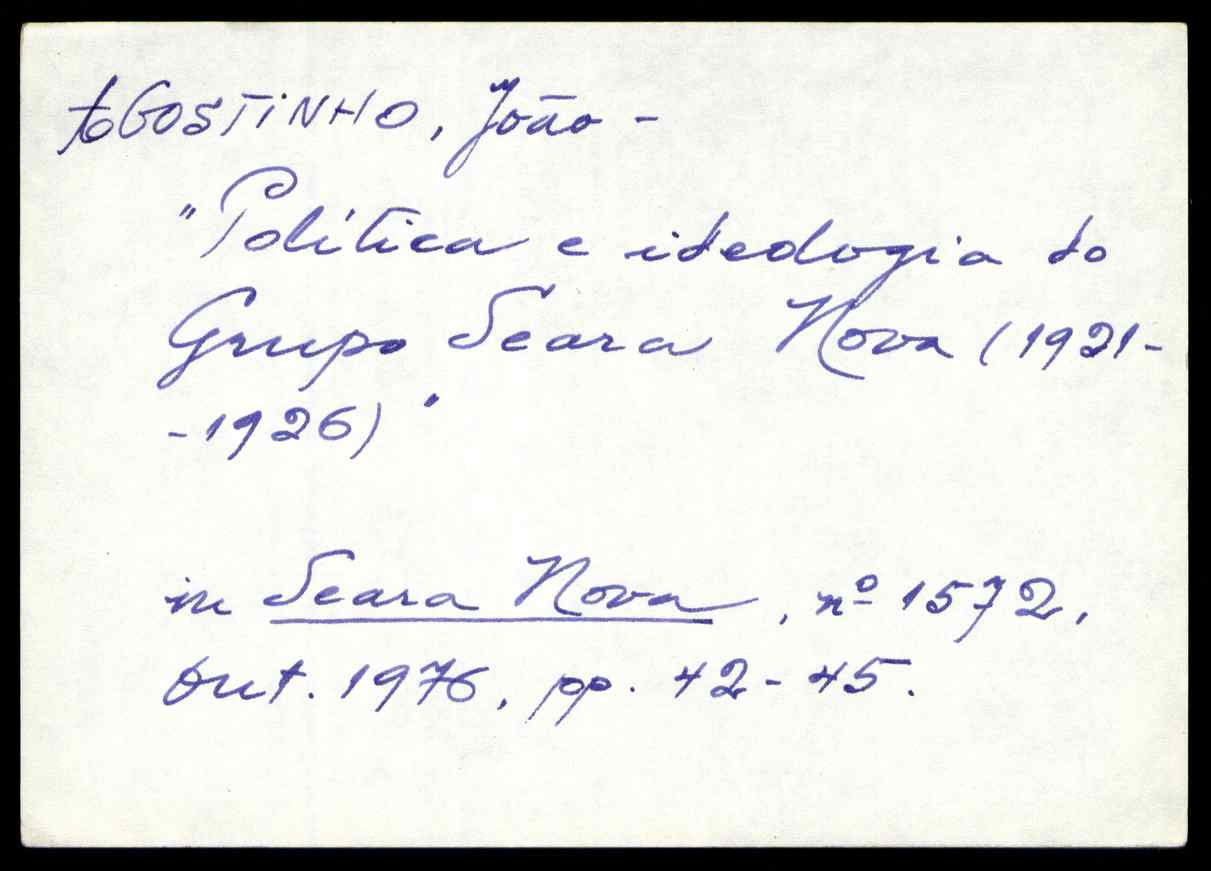 AGOSTINHO, João -
"Política e ideologia do
Grupo Seara Nova (1921-
-1926)"
in Seara Nova, nº 1572,
Out. 1976, pp. 42-45.